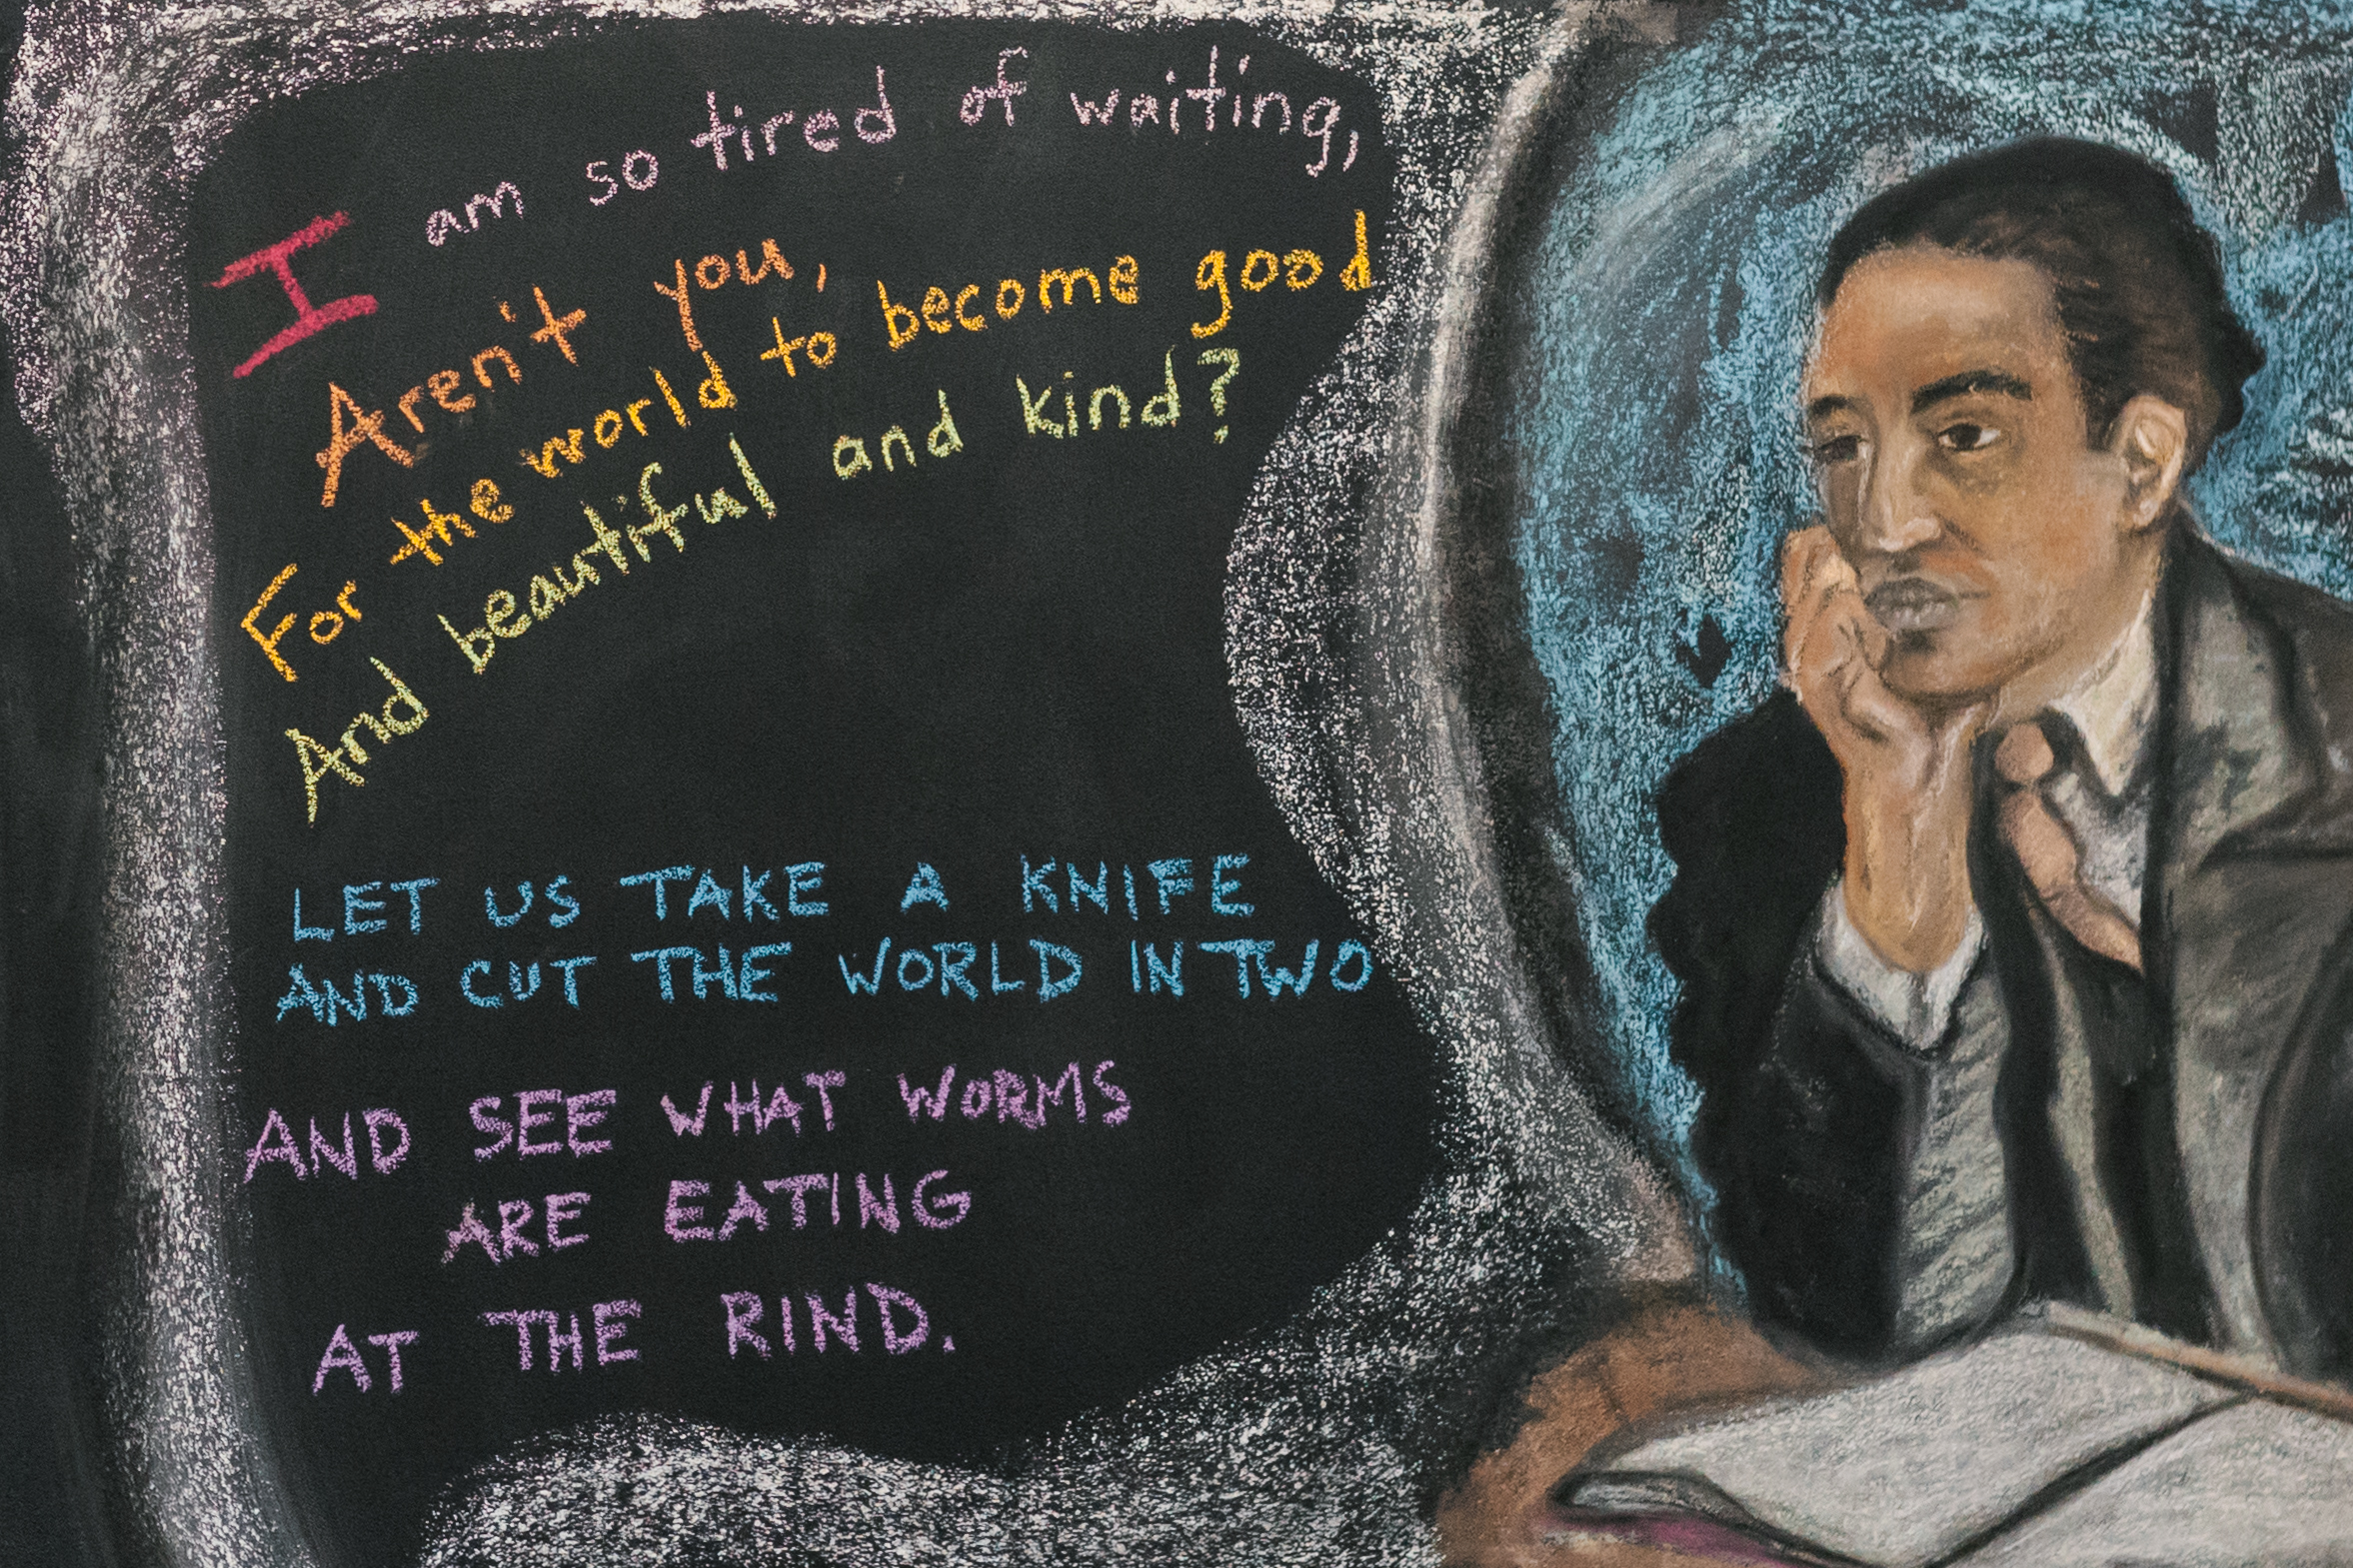 I am so tired of waiting,
Aren't you,
For the world to become good
And beautiful and kind?
LET US TAKE A KNIFE
AND CUT THE WORLD IN TWO
AND SEE WHAT WORMS
ARE EATING
AT THE RIND.